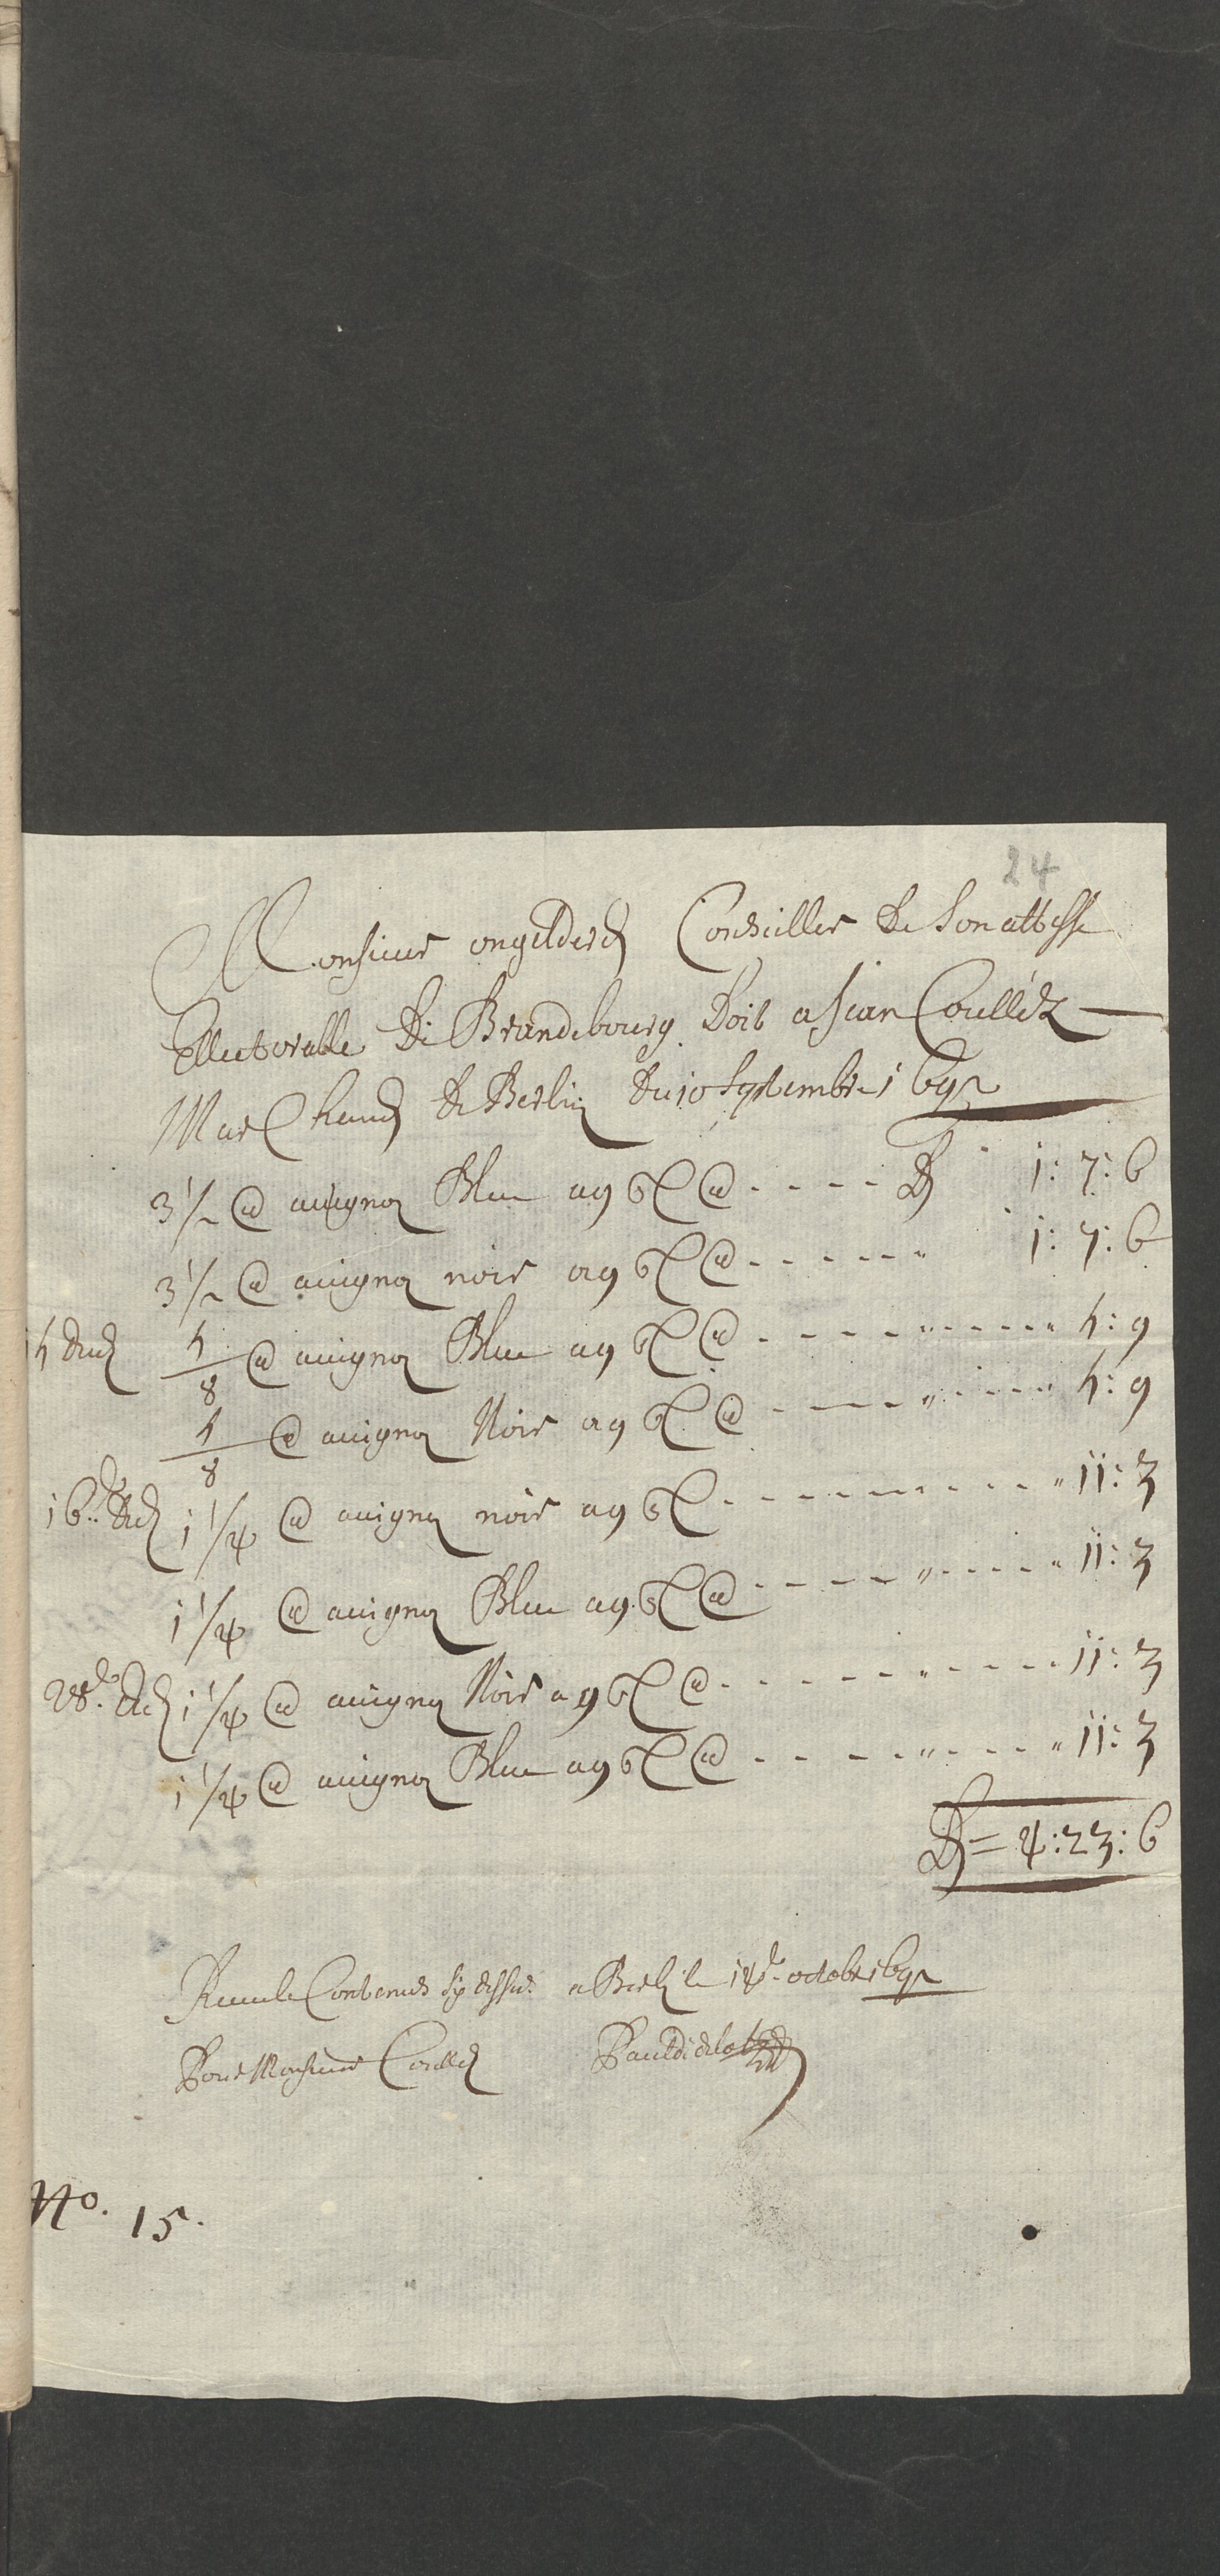 24
Monsieur ongelders Conseiller De Son altesse
Ellectoralle De Brandebourg Doit a Jean Coulléz
Marchand De Berlin Du 10 Septembre 1692
3 1/2 @ auignon Bleu a 9 gl @ - - - - R 1: 7: 6
3 1/2 @ auignon noir a 9 gl @ - - - - - " 1: 7: 6
4 dud 4/8 @ auignon Bleu a 9 gl @ - - - - - " - - - - " 4: 9
4/8 @ auignon Noir a 9 gl @ - - - - " - - - - " 4: 9
16: dud 1 1/4 @ auignon noir a 9 gl - - - - - - - - - - " 11: 3
1 1/4 @ auignon Bleu a 9 gl @ - - - - - " - - - - " 11: 3
28. dud 1 1/4 @ auignon Noir a 9 gl @ - - - - - - " - - - - 11: 3
1 1/4 @ auignon Bleu a 9 gl @ - - - - - " - - - " 11: 3
R = 4: 23: 6
Receu le Contenus sy dessus a Berlin le 14 octobre 1692
Pour Monsieur Coullez Paul
No. 15.